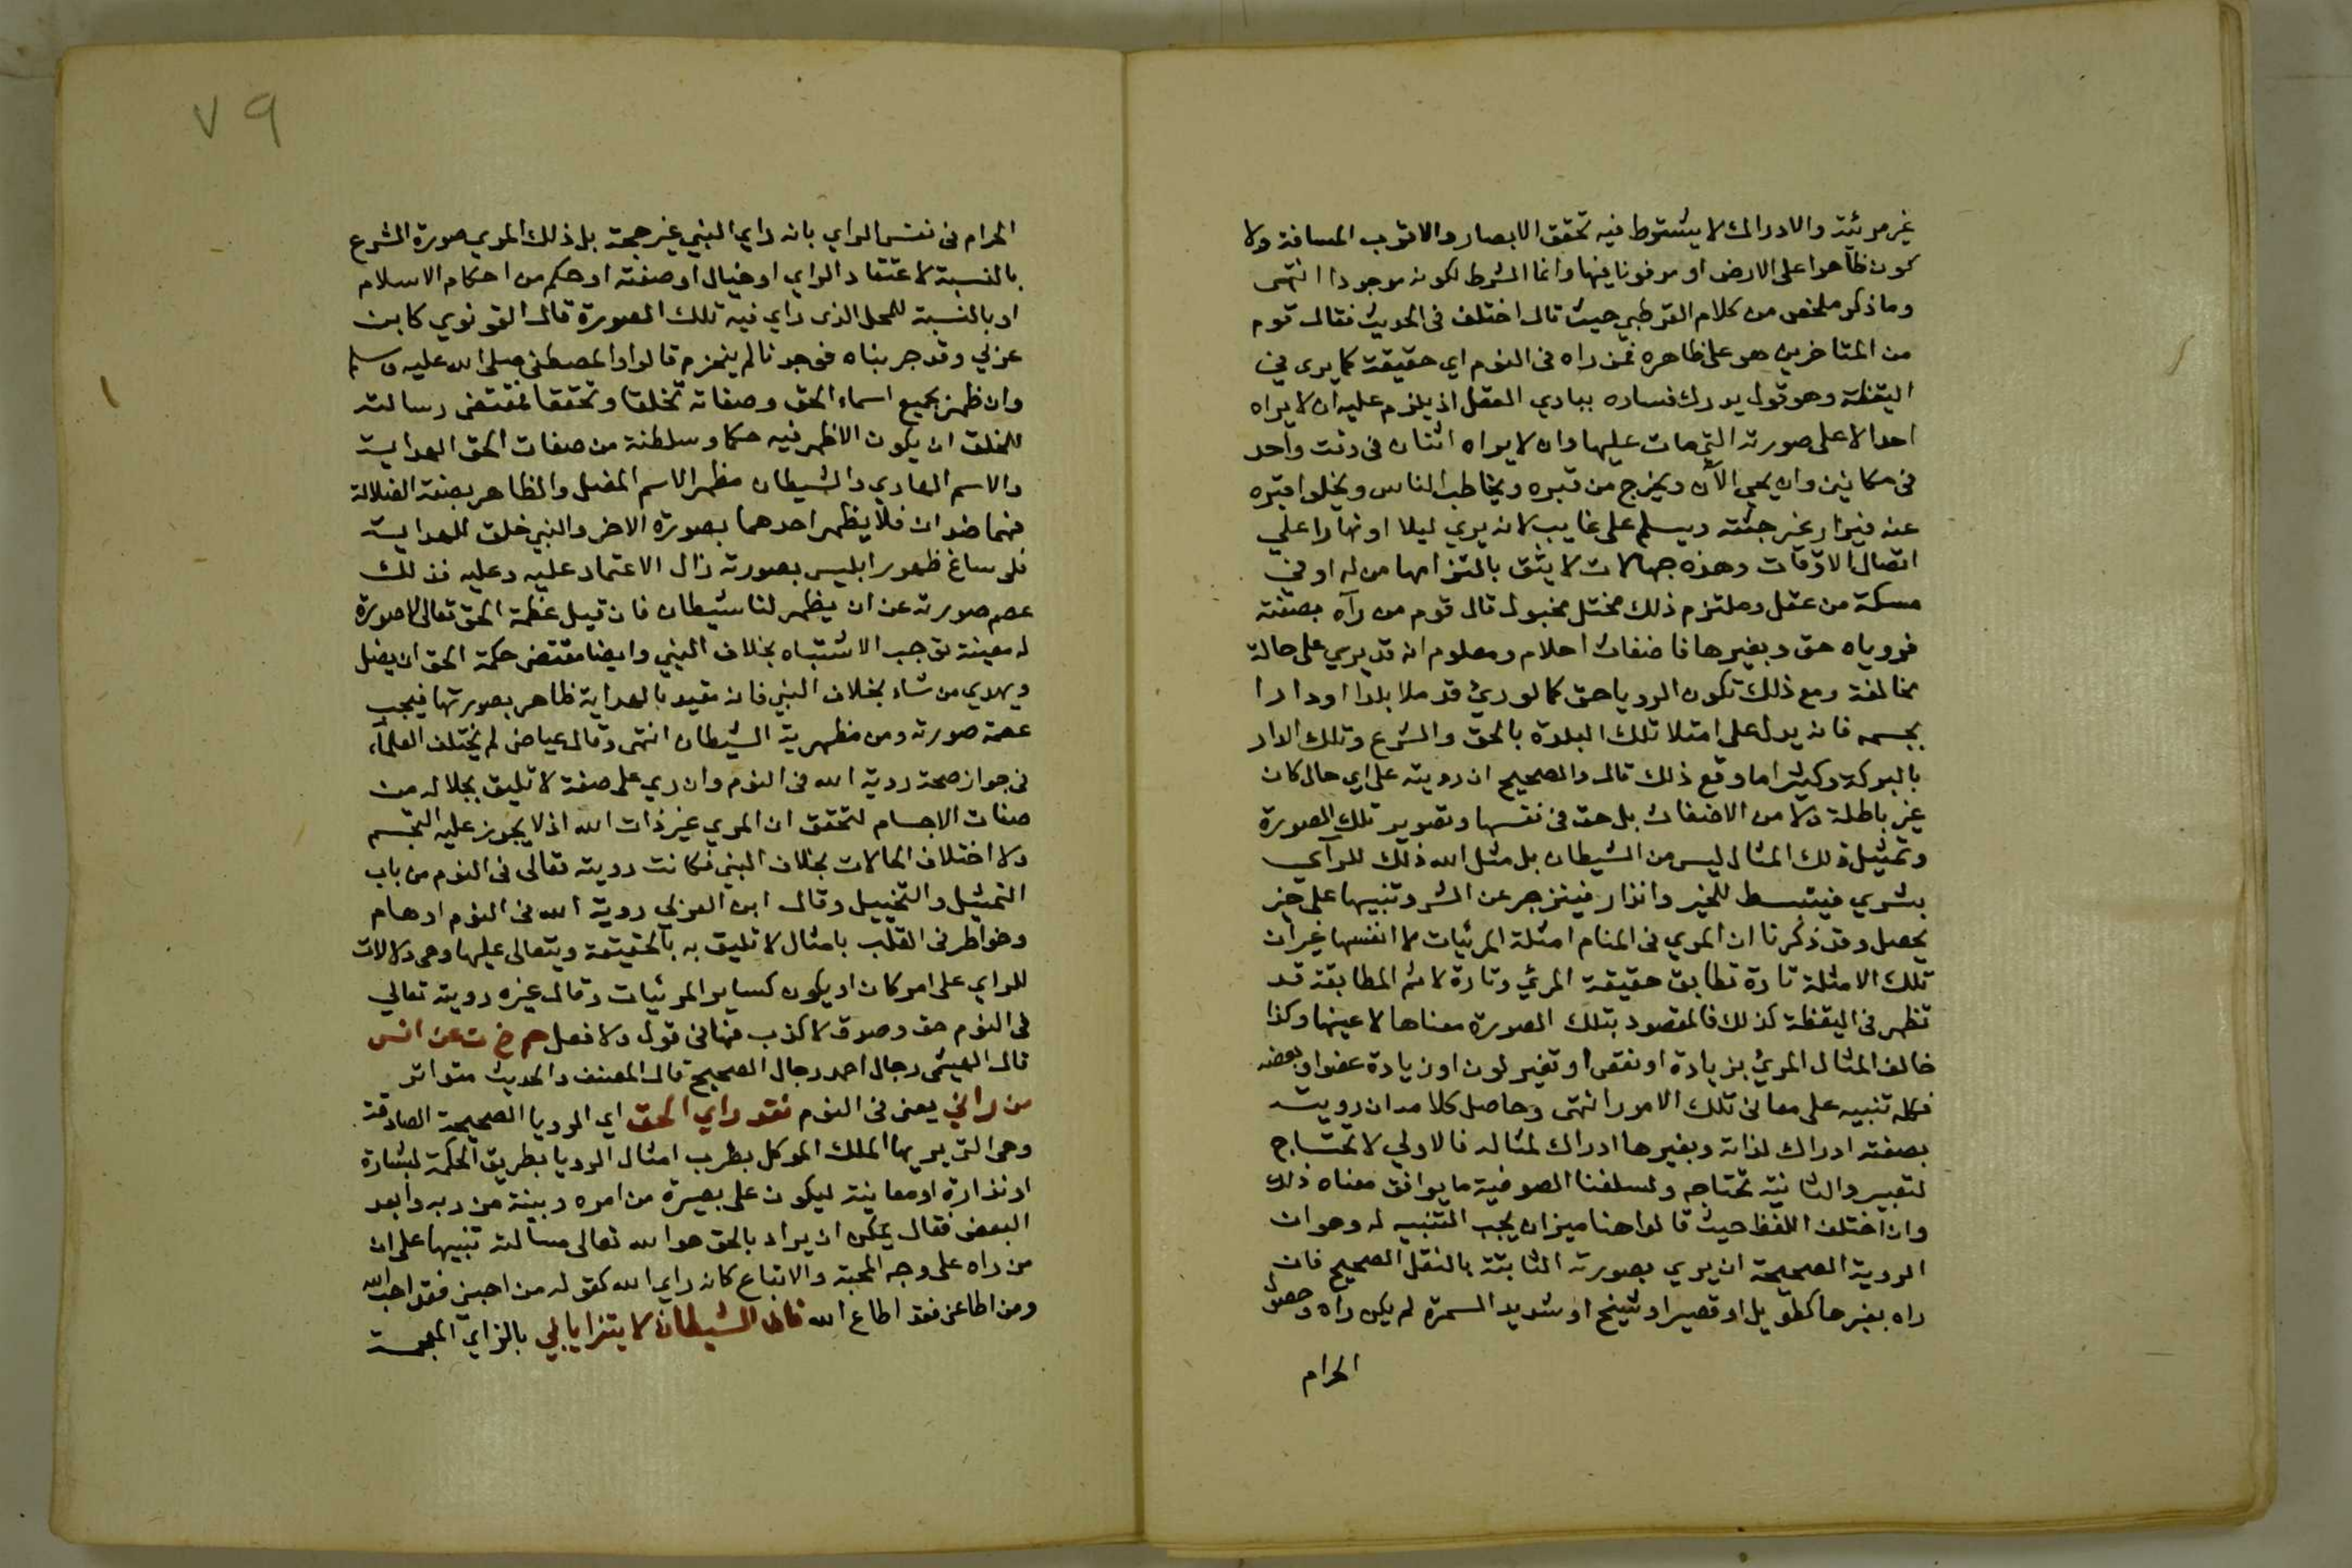 غير مرئية والادراك لا يشترط فيه تحقق الابصار والا قرب المسافة ولا
كون ظاهرا على الارض او مدفونا فيها وانما الشرط لكونه موجودا انتهى
وما ذكره ملخص من كلام القرطبي حيث قال اختلف فى الحديث فقال قوم
من المتاخرين هو على ظاهره فمن راه فى النوم اي حقيقة كما يرى في
اليقظة وهو قول يدرك فساده ببادي العقل اذ يلزم عليه ان لا يراه
احد الا على صورته التي مات عليها وان لا يراه اثنان فى وقت واحد
فى مكانين وان يحي الآن ويخرج من قبره ويخاطب الناس ويخلوا قبره
عنه فيزار غير جثته ويسلم على غايب لانه يري ليلا او نهارا علي
اتصال الاوقات وهذه جهالات لا يثق بالتزامها من له اوفي
مسكة من عقل وملتزم ذلك مختل مخبول قال قوم من رآه بصفته
فروياه حق وبغيرها فاضغاث احلام ومعلوم انه قد يري على حالة
مخالفة ومع ذلك تكون الرويا حق كما لو ري قد ملا بلدا او دارا
بجسمه فانه يدل على امتلا تلك البلدة بالحق والشرع وتلك الدار
بالبركة وكثيرا ما وقع ذلك قال والصحيح ان رويته على اي حال كان
غير باطلة ولا من الاضغاث بل حق فى نفسها وتصوير تلك الصورة
وتمثيل ذلك المثال ليس من الشيطان بل مثل الله ذلك للرآي
بشري فينبسط للخير وانذار فينزجر عن الشر وتنبيها على خير
يحصل وقد ذكرنا ان المري فى المنام امثلة المرئيات لا انفسها غير ان
تلك الامثلة تارة تطابق حقيقة المرئي وتارة لا ثم المطابقة قد
تظهر فى اليقظة كذلك فالمقصود بتلك الصورة معناها لا عينها وكذا
خالف المثال المرئ بزيادة او نقص او تغير لون او زيادة عضو او بعضه
فكله تنبيه على معانى تلك الامور انتهى وحاصل كلامه ان رويته
بصفته ادراك لذاته وبغيرها ادراك لمثاله فالاولي لا تحتاج
لتعبير والثانية تحتاجه ولسلفنا الصوفية ما يوافق معناه ذلك
وان اختلف اللفظ حيث قالوا هنا ميزان يجب التنبيه له وهو ان
الروية الصحيحة ان يري بصورته الثابتة بالنقل الصحيح فان
راه بغيرها كطويل او قصير او شيخ او شديد السمرة لم يكن راه وحصول
الحرام
٧٩
الحرام فى نفس الراي بانه راي النبي غير حجة بل ذلك المري صورة الشرع
بالنسبة لاعتقاد الراي او خيال او صفته او حكم من احكام الاسلام
او بالنسبة للمحل الذى راي فيه تلك الصورة قال القونوي كابن
عربي وقد جربناه فوجدنا لم ينخرم قالوا والمصطفى صلى الله عليه وسلم
وان ظهر بجميع اسماء الحق وصفاته تخلقا وتحققا فمقتضى رسالته
للخلق ان يكون الاظهر فيه حكما وسلطنة من صفات الحق الهداية
والاسم الهادي والشيطان مظهر الاسم المضل والظاهر بصفة الضلالة
فهما ضدان فلا يظهر احدهما بصورة الاخر والنبي خلق للهداية
فلو ساغ ظهور ابليس بصورته زال الاعتماد عليه وعليه فذلك
عصم صورته عن ان يظهر لنا شيطان فان قيل عظمة الحق تعالى لا صورة
له معينة توجب الاشتباه بخلاف النبي وايضا مقتضى حكمة الحق ان يضل
ويهدي من شاء بخلاف النبي فانه مقيد بالهداية ظاهر بصورتها فيجب
عصمة صورته ومن مظهرية الشيطان انتهى وقال عياض لم يختلف العلماء
فى جواز صحة روية الله فى النوم وان ري على صفة لا تليق بجلاله من
صفات الاجسام لتحقق ان المري غير ذات الله اذ لا يجوز عليه التجسم
ولا اختلاف الحالات بخلاف النبي فكانت رويته تعالى فى النوم من باب
التمثيل والتخييل وقال ابن العربي روية الله فى النوم اوهام
وخواطر فى القلب بامثال لا تليق به بالحقيقة ويتعالى عليها وهى دلالات
للراي على امر كان او يكون كساير المرئيات وقال غيره رويته تعالي
فى النوم حق وصدق لا كذب فيها فى قول ولا فعل حم خ ت عن انس
قال الهيثمى رجال احمد رجال الصحيح قال المصنف والحديث متواتر
من راني يعنى فى النوم فقد راي الحق اي الرويا الصحيحة الصادقة
وهى التى يريها الملك الموكل بضرب امثال الرويا بطريق الحكمة لبشارة
او نذارة او معاينة ليكون على بصيرة من امره وبينة من ربه وابعد
البعض فقال يمكن ان يراد بالحق هو الله تعالى مسالة تنبيها على ان
من راه على وجه المحبة والاتباع كانه راي الله كقوله من احبني فقد احب الله
ومن اطاعني فقد اطاع الله فان الشيطان لا يتزايا بي بالزاي المعجمة